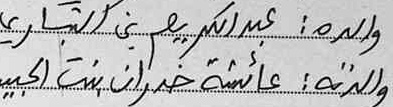 والده: عبد الكريم بن التباري
والدته: عائشة خدران بنت الجيـ